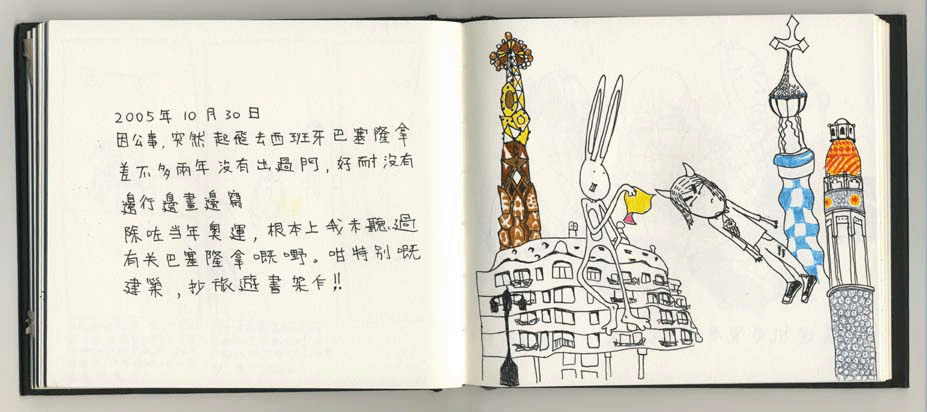 2005年 10月 30日
因公事，突然起飛去西班牙巴塞隆拿
差不多兩年沒有出過門，好耐沒有
邊行邊畫邊寫
除咗当年奧運，根本上我未聽過
有关巴塞隆拿嘅嘢。咁特別嘅
建築，抄旅遊書架乍!!